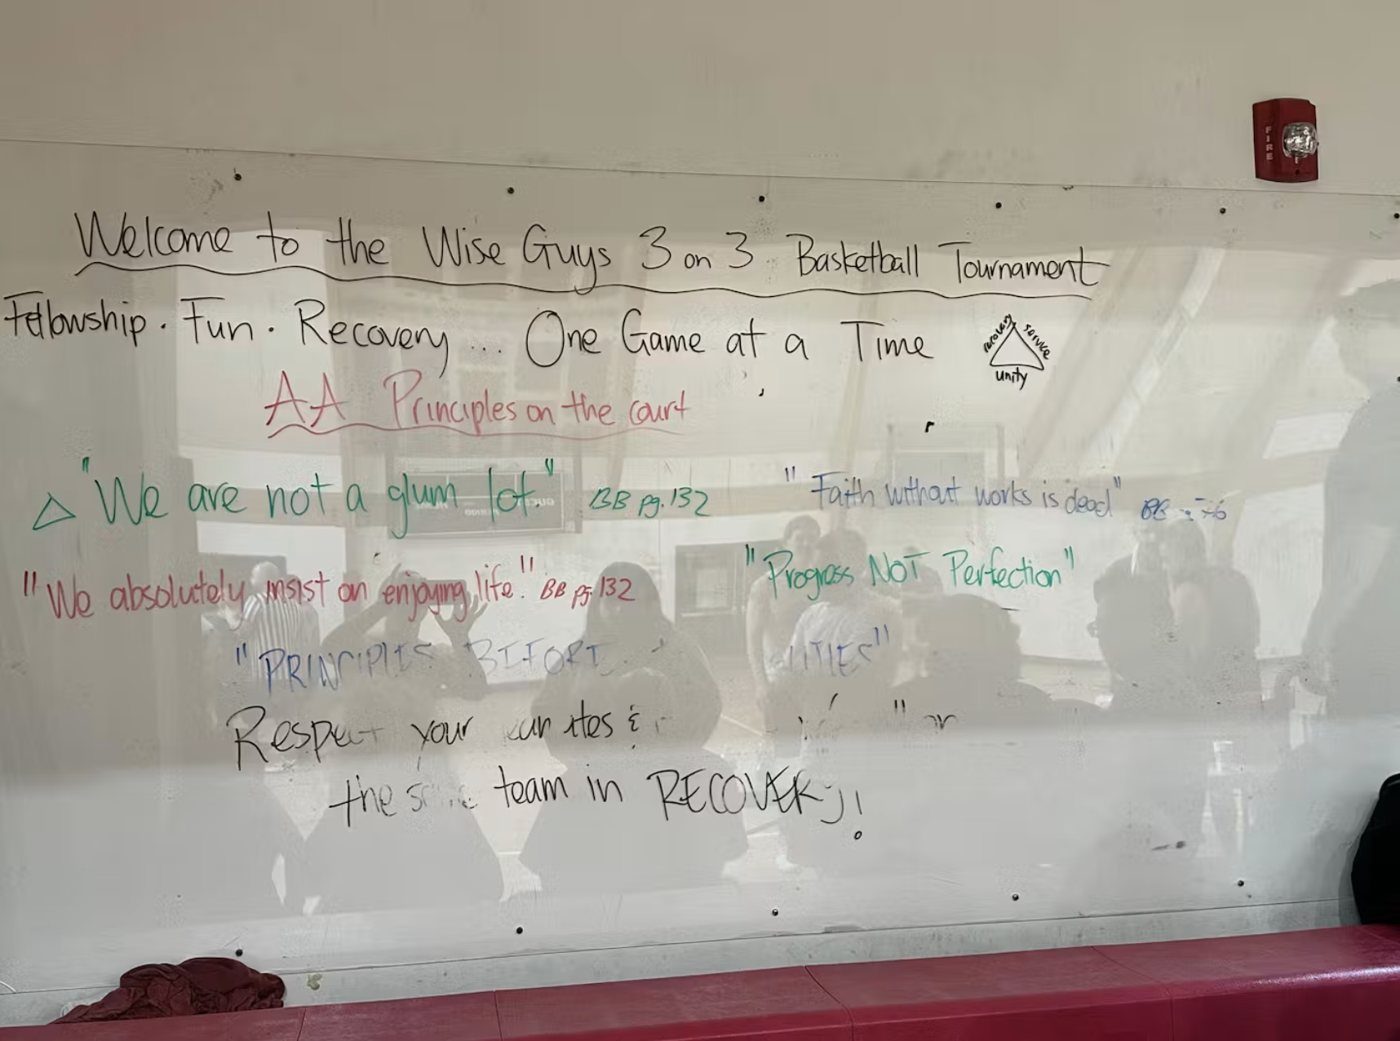 FIRE
Welcome to the Wise Guys 3 on 3 Basketball Tournament
Fellowship · Fun · Recovery... One Game at a Time
recovery service
unity
AA Principles on the court
"We are not a glum lot." BB pg. 132
"Faith without works is dead" BB
"We absolutely insist on enjoying life." BB pg 132
"Progress NOT Perfection"
"PRINCIPLES BEFORE
Respect your &
the team in RECOVERY!